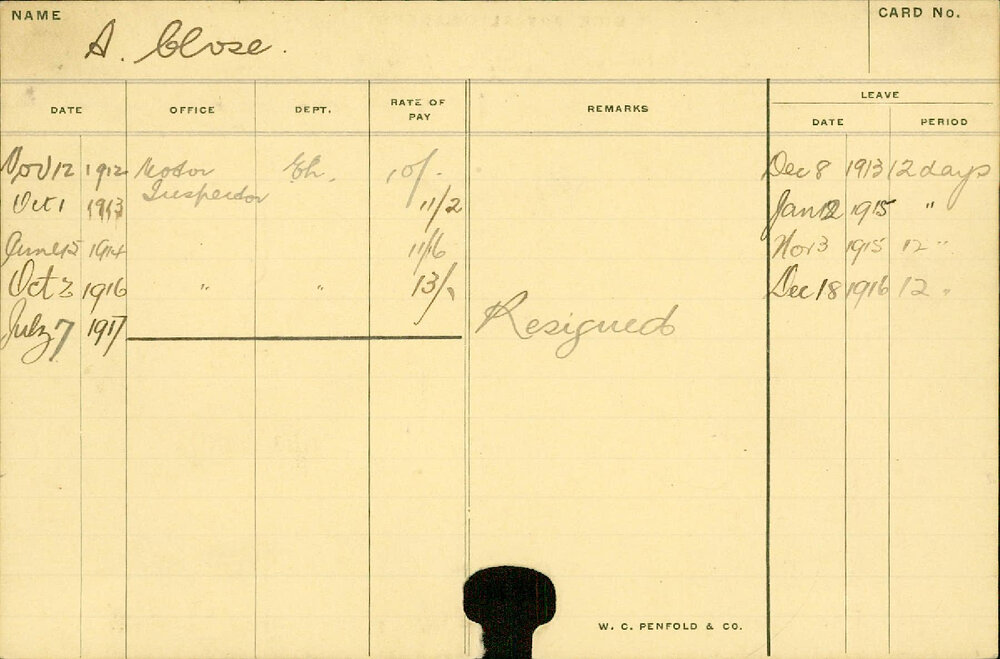 NAME
CARD No.
A. Close.
DATE OFFICE DEPT. RATE OF PAY REMARKS LEAVE
DATE PERIOD
Nov 12 1912 Motor Inspector Eh. 10/- Dec 8 1913 12 days
Oct 1 1913 11/2 Jan 12 1915 "
June 15 1914 11/6 Nov 3 1915 12 "
Oct 2 1916 " " 13/- Dec 18 1916 12 "
July 7 1917 Resigned
W. C. PENFOLD & CO.